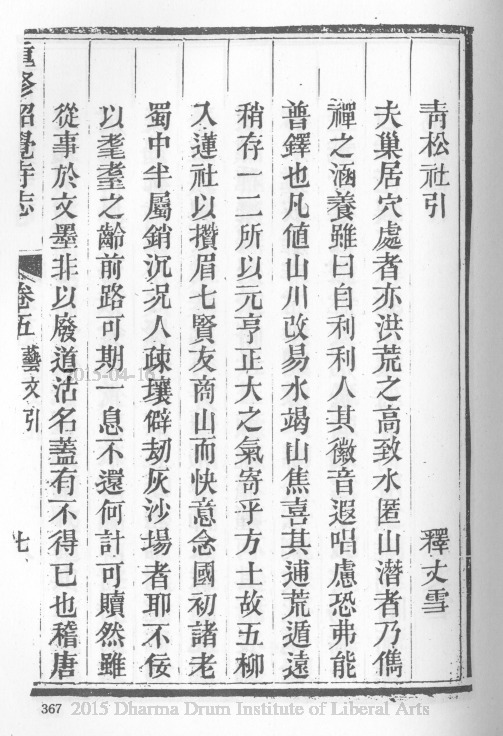 青松社引
釋丈雪
夫巢居穴處者亦洪荒之高致水匿山潛者乃儁
禪之涵養雖曰自利利人其徽音遐唱慮恐弗能
普鐸也凡値山川改易水竭山焦喜其逋荒遁遠
稍存一二所以元亨正大之氣寄乎方土故五柳
入蓮社以攢眉七賢友商山而快意念國初諸老
蜀中半屬銷沉況人疎壤僻刼灰沙場者耶不佞
以耄耋之齡前路可期一息不還何計可贖然雖
從事於文墨非以廢道沽名蓋有不得已也稽唐
重修昭覺寺志
卷五
藝文引
七
2013-04-16
367
2015 Dharma Drum Institute of Liberal Arts